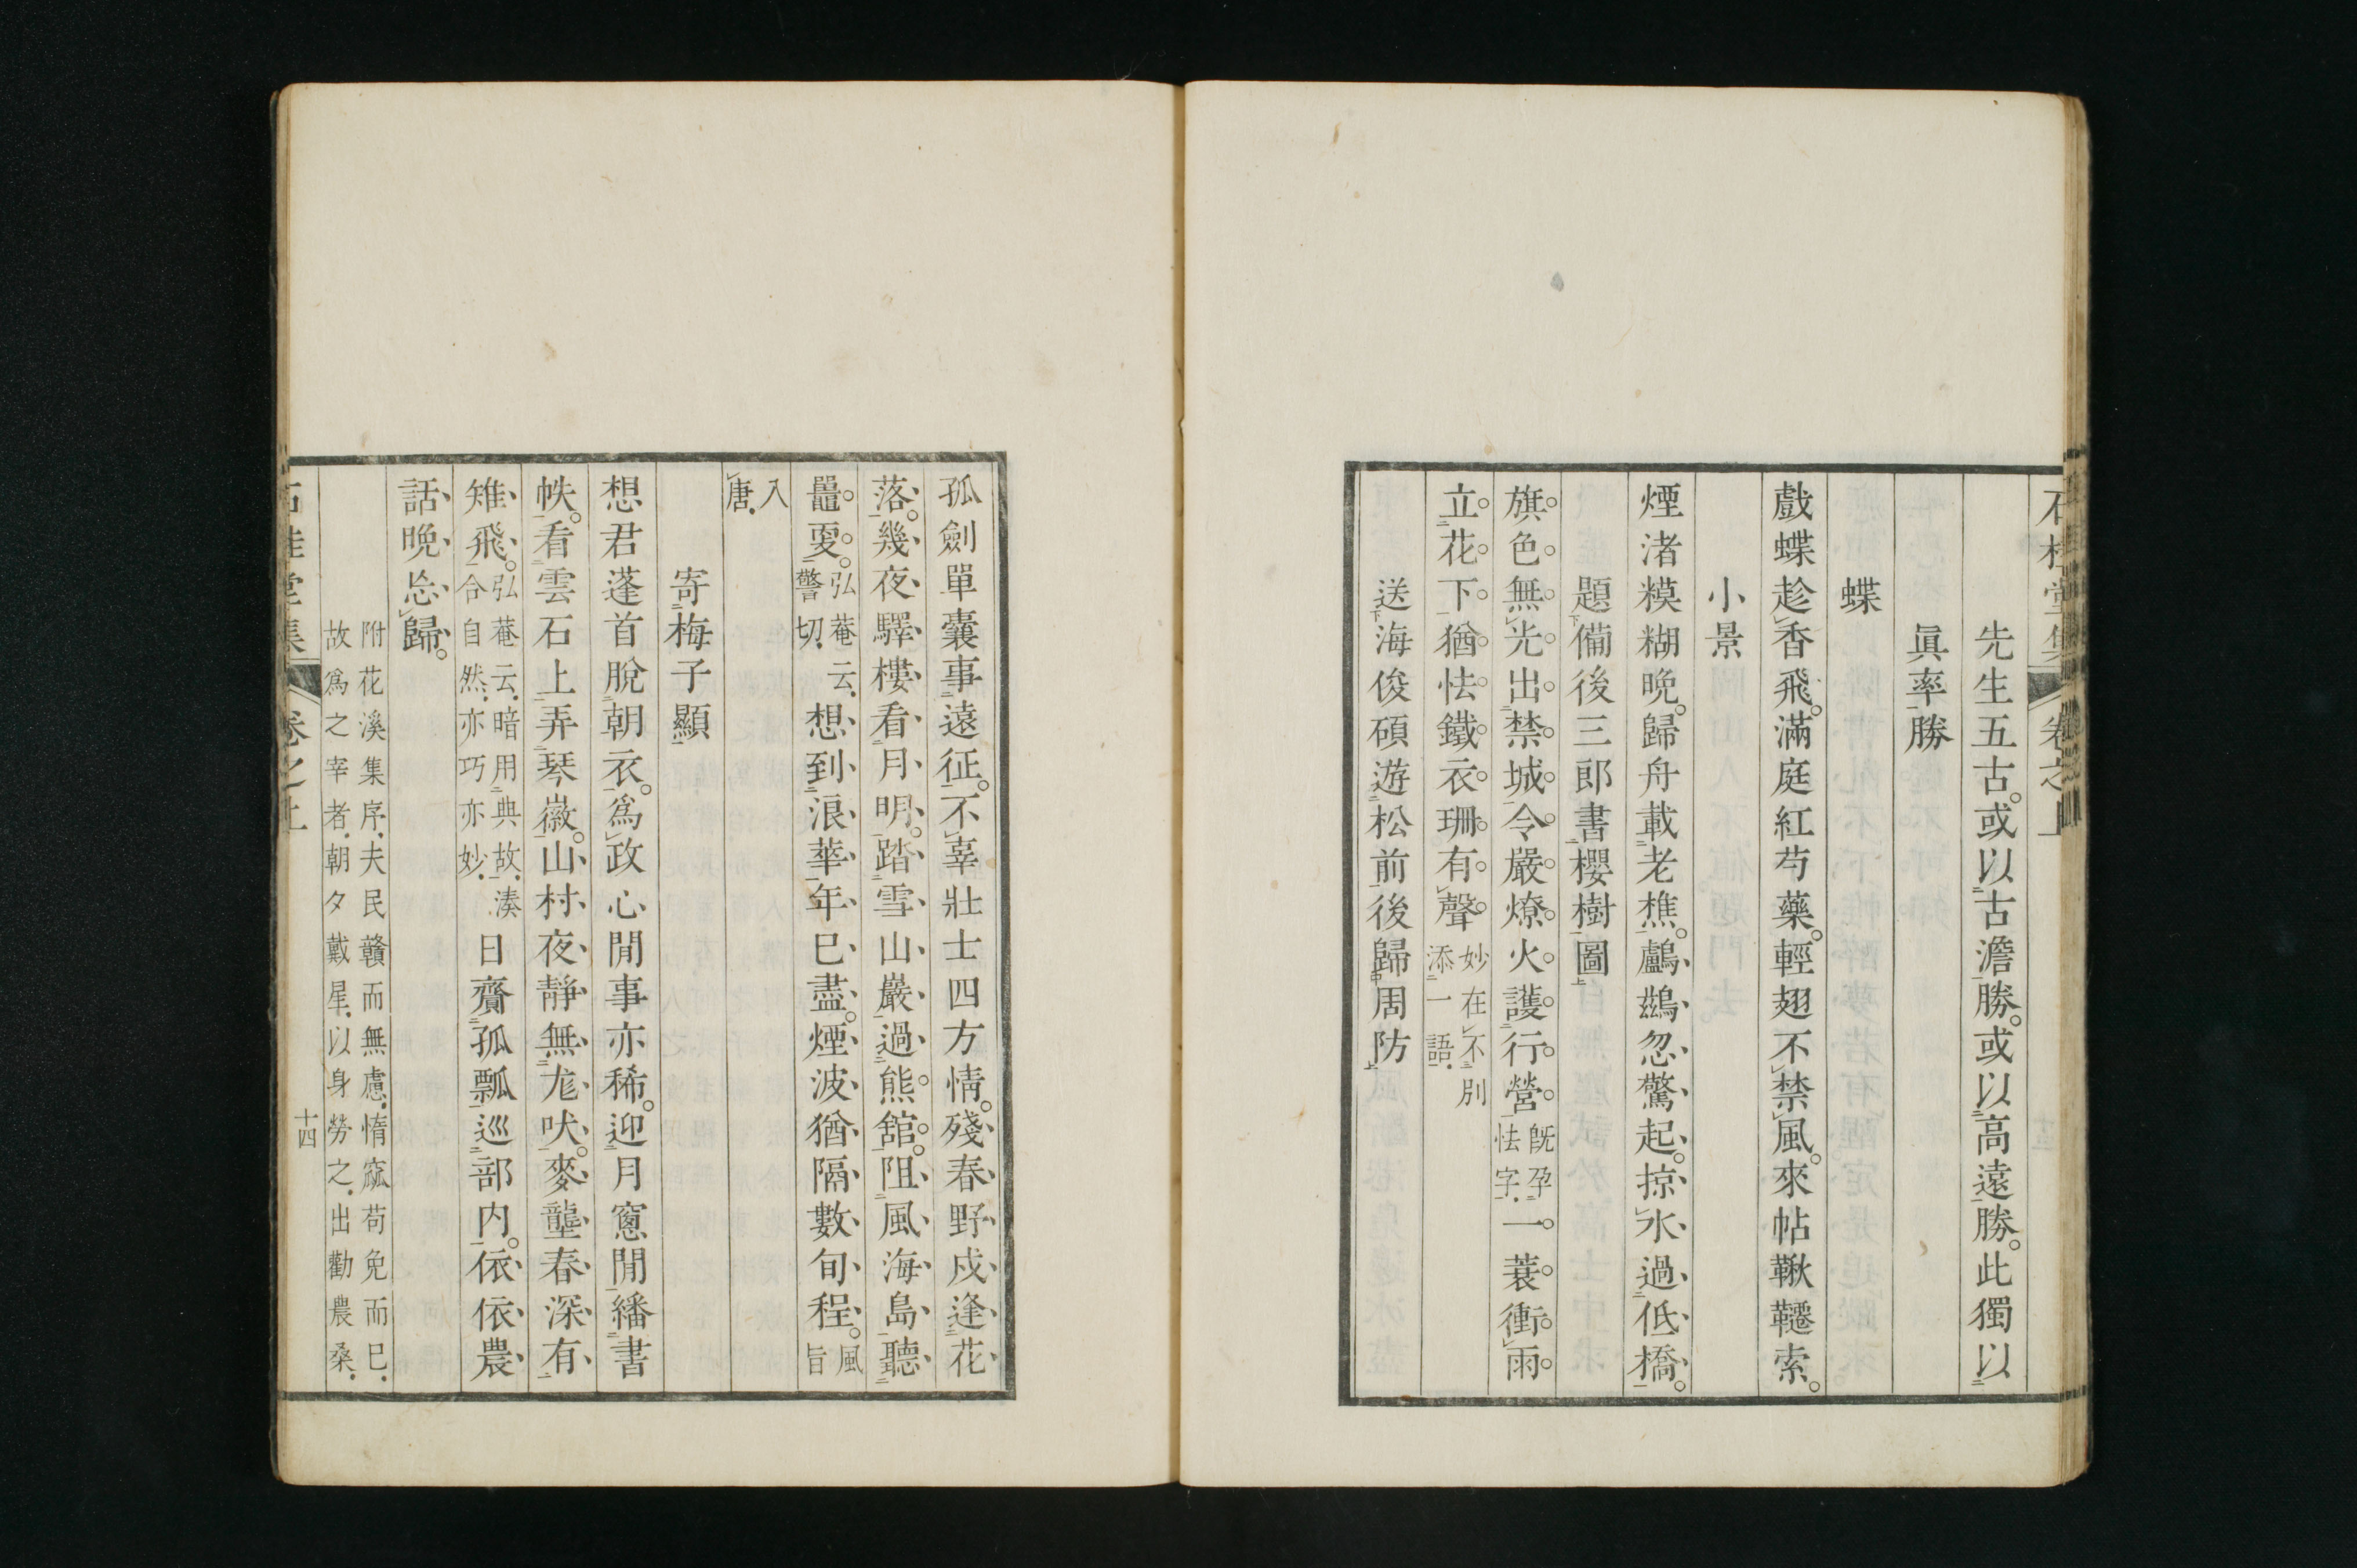 石桂堂集 卷之上
先生五古。或以古澹勝。或以高遠勝。此獨以
眞率勝
蝶
戲蝶趁香飛。滿庭紅芍藥。輕翅不禁風。來帖鞦韆索。
小景
煙渚糢糊晩。歸舟載老樵。鸕鷀忽驚起。掠水過低橋。
題備後三郎書櫻樹圖
旗色無光出禁城。令嚴燎火護行營。既孕怯字。一蓑衝雨
立花下。猶怯鐵衣珊有聲。妙在不別添一語。
送海俊碩遊松前後歸周防
孤劍單囊事遠征。不辜壯士四方情。殘春野戍逢花
落。幾夜驛樓看月明。踏雪山巖過熊舘。阻風海島聽
鼉更。弘菴云。警切。想到浪華年已盡。煙波猶隔數旬程。風旨
入唐。
寄梅子顯
想君蓬首脫朝衣。爲政心閒事亦稀。迎月窻閒繙書
帙。看雲石上弄琴徽。山村夜靜無尨吠。麥壟春深有
雉飛。弘菴云。暗用典故。湊合自然。亦巧亦妙。日齎孤瓢巡部内。依依農
話晩忘歸。
附花溪集序。夫民贛而無慮。惰窳苟免而已。
故爲之宰者。朝夕戴星。以身勞之。出勸農桑。
石桂堂集 卷之上 十四